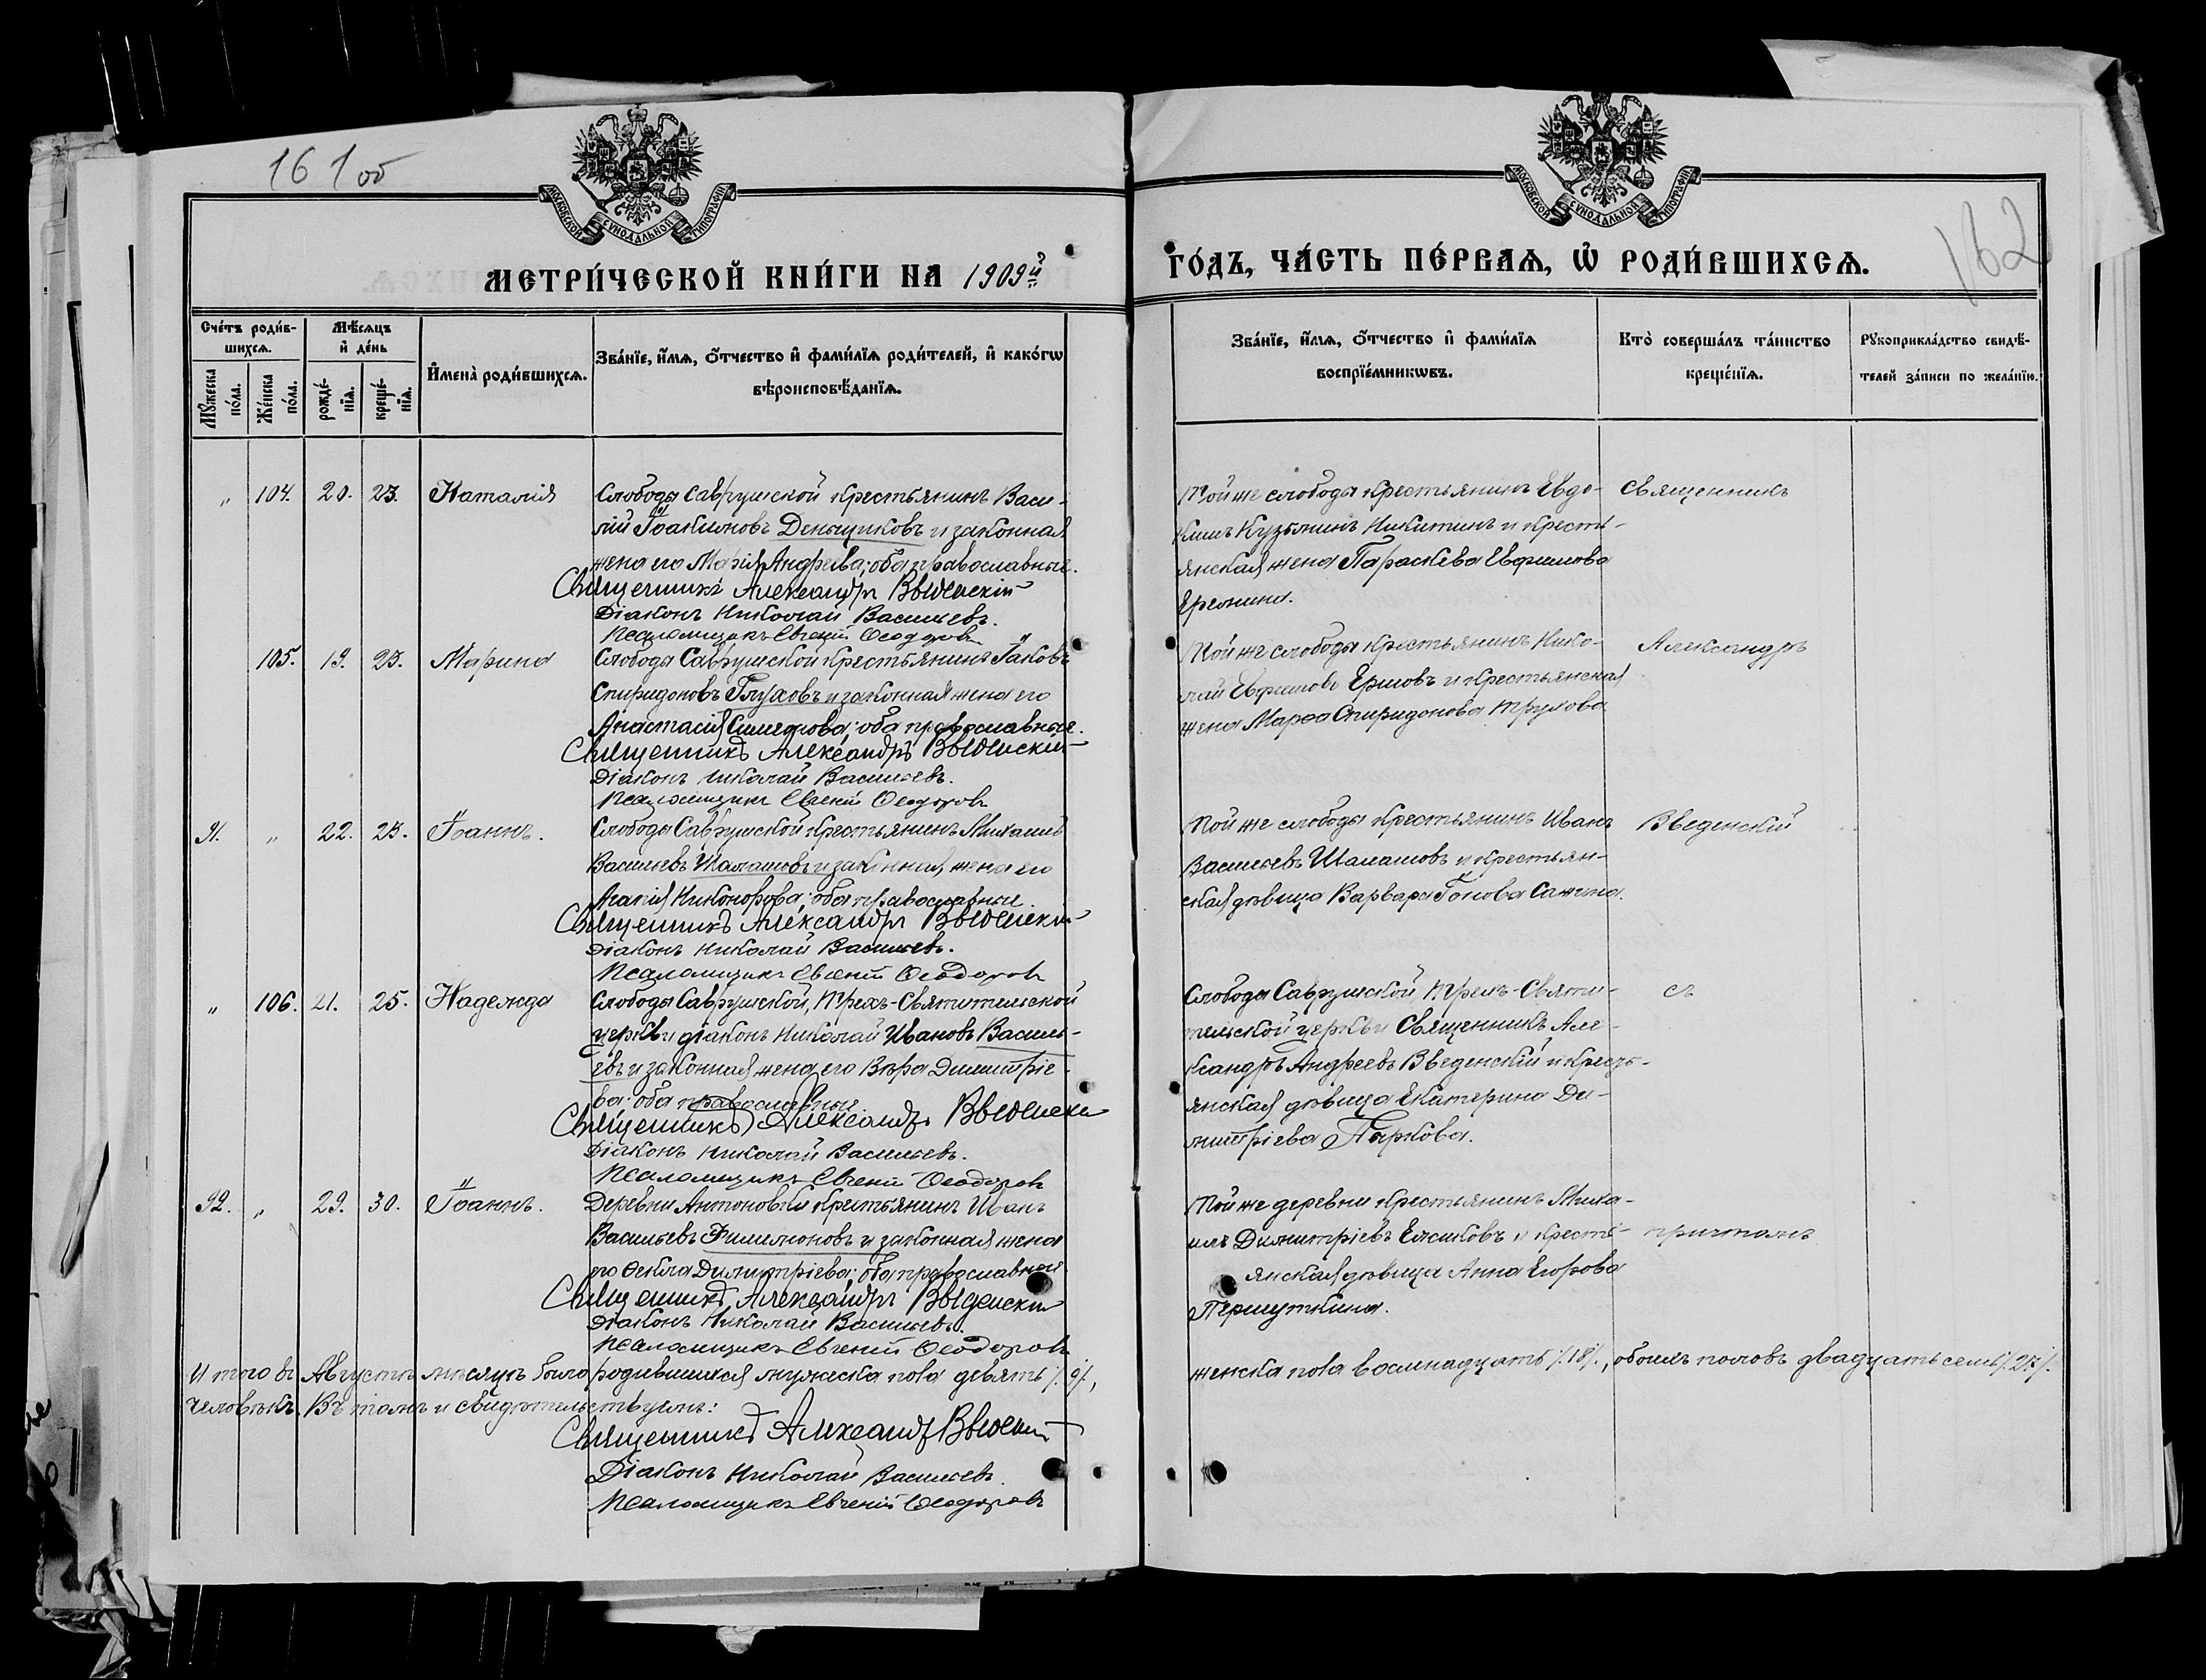 161 об
162
МОСКОВСКОЙ СУНОДАЛЬНОЙ ТИПОГРАФІИ
МОСКОВСКОЙ СУНОДАЛЬНОЙ ТИПОГРАФІИ
МЕТРИ́ЧЕСКОЙ КНИ́ГИ НА 1909й
ГО́ДЪ, ЧА́СТЬ ПЕ́РВАѦ, Ѡ҆ РОДИ́ВШИХСѦ.
Сче́тъ роди́в-
шихсѧ.
Мꙋжеска по́ла.
Же́нска по́ла.
Мѣ́сѧцъ
и҆ де́нь
рожде́-
нїѧ.
креще́-
нїѧ.
И҆мена̀ роди́вшихсѧ.
Зва́нїе, и҆́мѧ, ѻ҆́тчество и҆ фами́лїѧ роди́телей, и҆ како́гѡ
вѣроисповѣ́данїѧ.
Зва́нїе, и҆́мѧ, ѻ҆́тчество и҆ фами́лїѧ
воспрїе́мникѡвъ.
Кто̀ соверша́лъ та́инство
креще́нїѧ.
Рꙋкоприкла́дство свидѣ́-
телей за́писи по жела́нїю.
„ 104. 20. 23. Наталія
Слободы Саврушской крестьянинъ Васи-
лій Іоакимовъ Деньщиковъ и законная
жена его Марія Андреева; оба православные.
Священникъ Александръ Введенскій
Діаконъ Николай Васильевъ.
Псаломщикъ Евгеній Ѳеодоровъ
Той же слободы крестьянинъ Евдо-
кимъ Кузьминъ Никитинъ и кресть-
янская жена Параскева Евфимова
Еремина.
Священникъ
105. 19. 23. Марина
Слободы Саврушской крестьянинъ Іаковъ
Спиридоновъ Глуховъ и законная жена его
Анастасія Симеонова; оба православные.
Священникъ Александръ Введенскій
Діаконъ Николай Васильевъ.
Псаломщикъ Евгеній Ѳеодоровъ
Той же слободы крестьянинъ Нико-
лай Евфимовъ Ершовъ и крестьянская
жена Марѳа Спиридонова Трухова
Александръ
91. „ 22. 23. Іоаннъ.
Слободы Саврушской крестьянинъ Михаилъ
Васильевъ Шалашовъ и законная жена его
Агапія Никонорова; оба православные.
Священникъ Александръ Введенскій
Діаконъ Николай Васильевъ.
Псаломщикъ Евгеній Ѳеодоровъ
Той же слободы крестьянинъ Иванъ
Васильевъ Шалашовъ и крестьян-
ская дѣвица Варвара Іонова Санина.
Введенскій
„ 106. 21. 25. Надежда
Слободы Саврушской, Трехъ-Святительской
церкви діаконъ Николай Ивановъ Василь-
евъ и законная жена его Вѣра Димитріе-
ва; оба православные
Священникъ Александръ Введенскій
Діаконъ Николай Васильевъ.
Псаломщикъ Евгеній Ѳеодоровъ
Слободы Саврушской Трехъ-Святи-
тельской церкви Священникъ Але-
ксандръ Андреевъ Введенскій и кресть-
янская дѣвица Екатерина Ди-
митріева Паркова.
съ
92. „ 29. 30. Іоаннъ.
Деревни Антоновки крестьянинъ Иванъ
Васильевъ Филимоновъ и законная жена
его Ѳекла Димитріева; оба православные
Священникъ Александръ Введенскій
Діаконъ Николай Васильевъ.
Псаломщикъ Евгеній Ѳеодоровъ
Той же деревни крестьянинъ Миха-
илъ Димитріевъ Елсиковъ и кресть-
янская дѣвица Анна Егорова
Першуткина.
причтомъ
Итого въ Августѣ мѣсяцѣ было родившихся мужеска пола девять /.9/.,
женска пола восемнадцать /.18/., обоихъ половъ двадцать семь /.27/.
человѣкъ. Въ томъ и свидѣтельствуемъ:
Священникъ Александръ Введенскій
Діаконъ Николай Васильевъ.
Псаломщикъ Евгеній Ѳеодоровъ